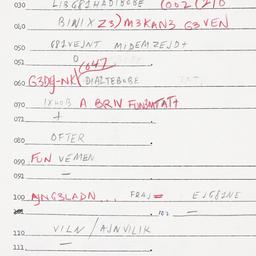 030 L13G81HADIBOBE (002(210
040 BINIX Z3)M3KAN3 G3VEN
050 681VEJNT MIDEMZEJD+
051 0 (042
060 G3DG-NK DIA2TEBOBE
070 1XHOB A BRIV FUNMTAT+
071 +
080 OFTER
090 FUN VEMEN
091 —
100 AJNG3LADN... FRAJ= EJG81NE
102 —
110 VILN / AJNVILIK
111 —